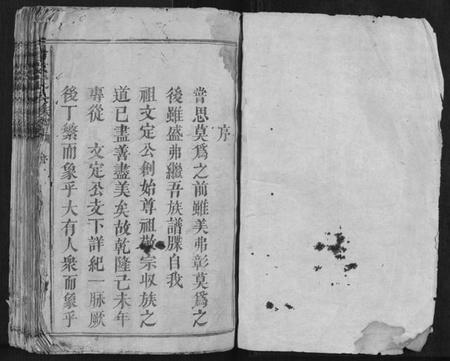 序
嘗思莫為之前雖美弗彰莫為之
後雖盛弗繼吾族譜牒自我
祖文定公創始尊祖敬宗收族之
道已盡善盡美矣故乾隆己未年
專從 文定公支下詳紀一脉厥
後丁繁而象乎大有人衆而象乎